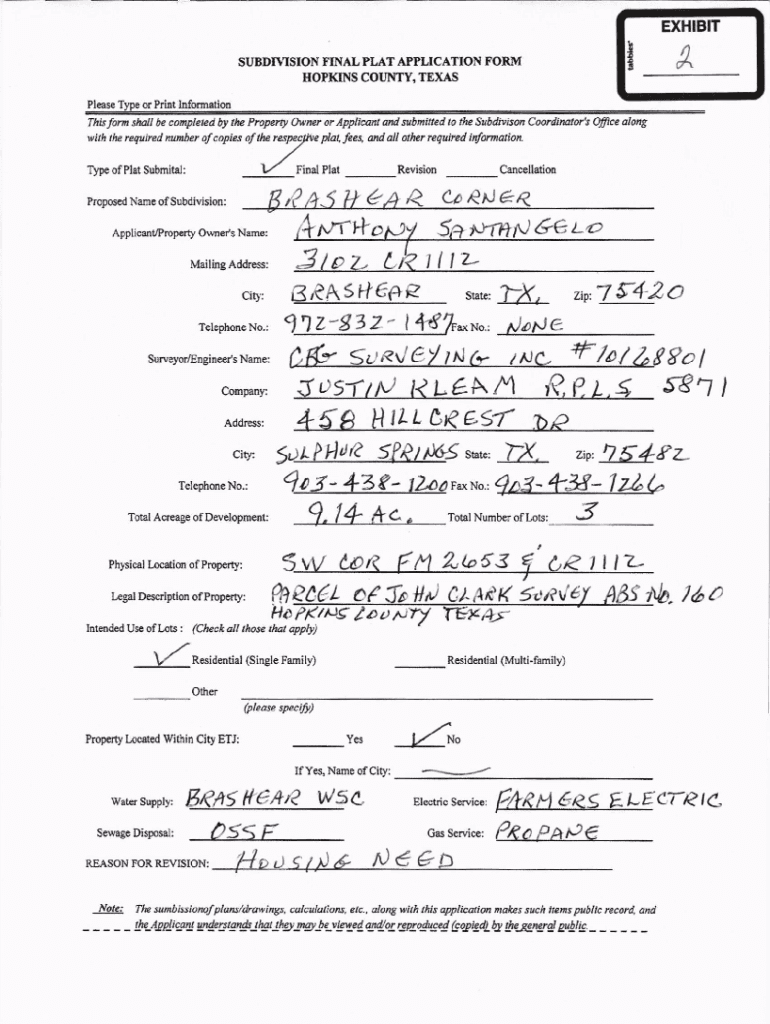 EXHIBIT
tabbies'
2
SUBDIVISION FINAL PLAT APPLICATION FORM
HOPKINS COUNTY, TEXAS
Please Type or Print Information
This form shall be completed by the Property Owner or Applicant and submitted to the Subdivison Coordinator's Office along
with the required number of copies of the respective plat, fees, and all other required information.
Type of Plat Submital: ✓ Final Plat Revision Cancellation
Proposed Name of Subdivision: BRASHEAR CORNER
Applicant/Property Owner's Name: ANTHONY SANTANGELO
Mailing Address: 3102 CR 1112
City: BRASHEAR State: TX. Zip: 75420
Telephone No.: 972-832-1487 Fax No.: NONE
Surveyor/Engineer's Name: CBG SURVEYING INC #10168801
Company: JUSTIN KLEAM R.P.L.S 5871
Address: 458 HILLCREST DR
City: SULPHUR SPRINGS State: TX. Zip: 75482
Telephone No.: 903-438-1200 Fax No.: 903-438-1266
Total Acreage of Development: 9.14 AC. Total Number of Lots: 3
Physical Location of Property: SW COR FM 2653 & CR 1112
Legal Description of Property: PARCEL OF JOHN CLARK SURVEY ABS No. 160
HOPKINS COUNTY TEXAS
Intended Use of Lots : (Check all those that apply)
✓ Residential (Single Family) Residential (Multi-family)
Other
(please specify)
Property Located Within City ETJ: Yes ✓ No
If Yes, Name of City: —
Water Supply: BRASHEAR WSC Electric Service: FARMERS ELECTRIC
Sewage Disposal: OSSF Gas Service: PROPANE
REASON FOR REVISION: HOUSING NEED
Note: The sumbissionof plans/drawings, calculations, etc., along with this application makes such items public record, and
the Applicant understands that they may be viewed and/or reproduced (copied) by the general public.